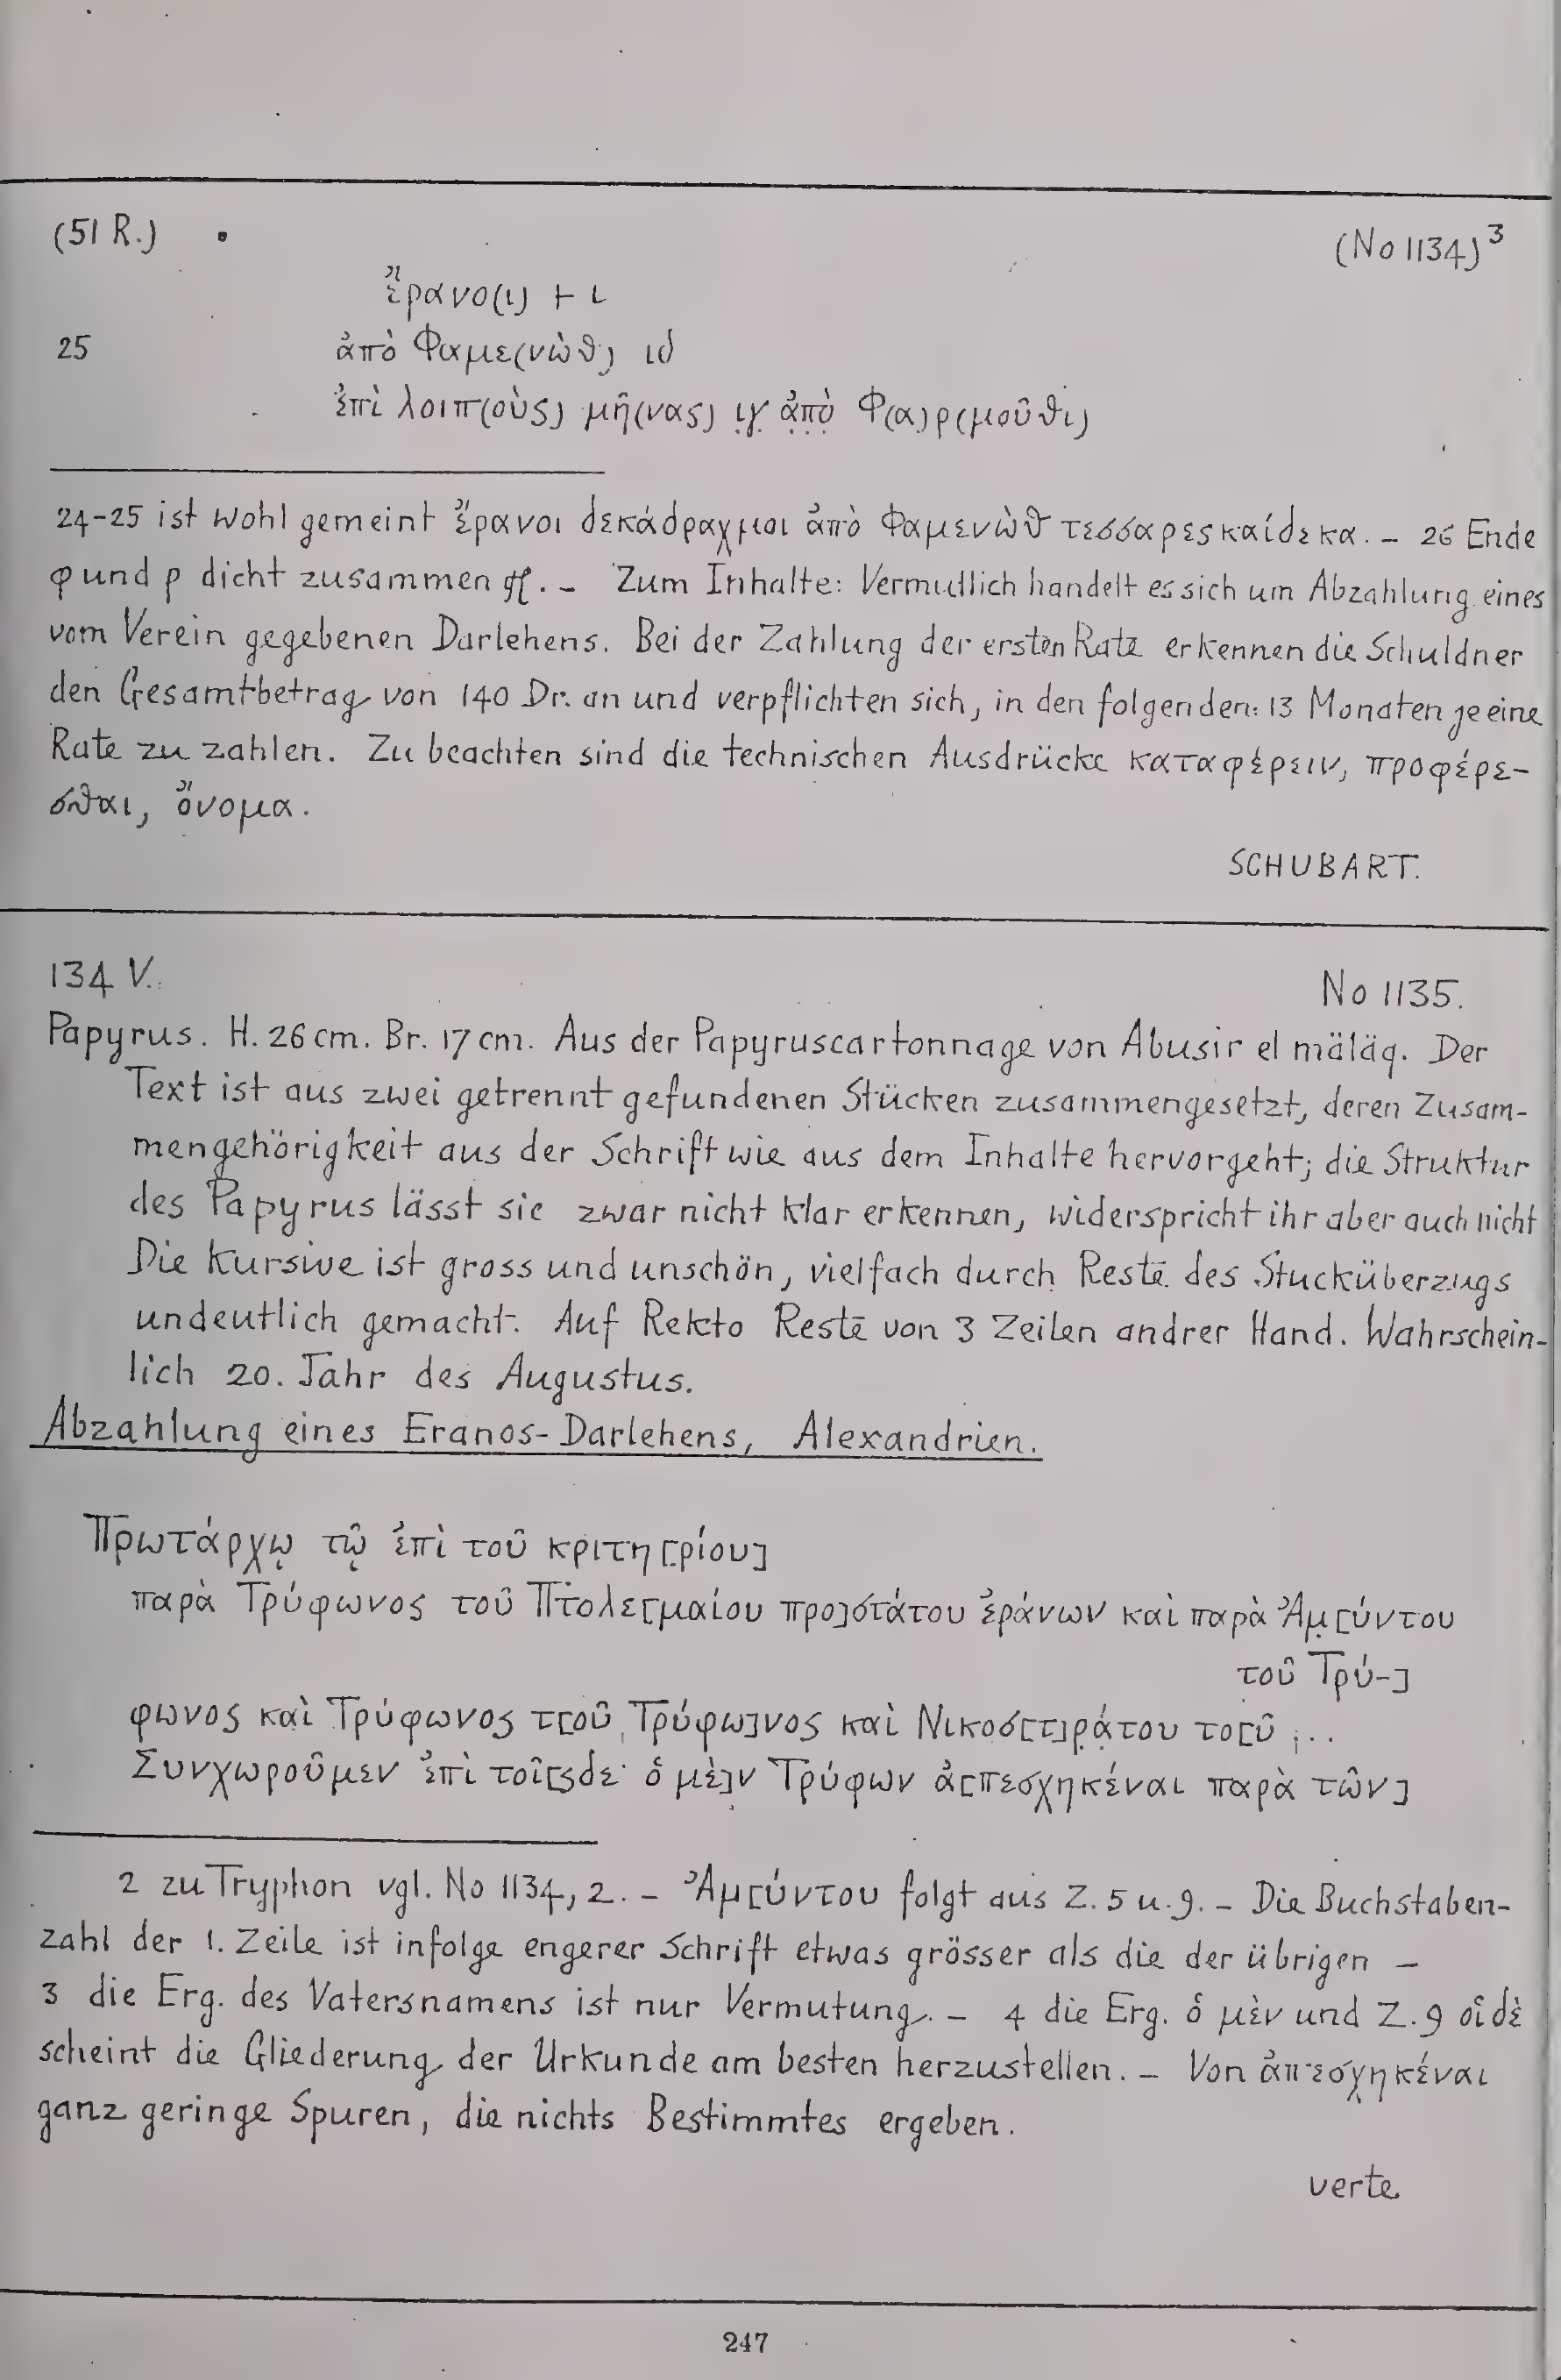 (51 R.) (No 1134)³
ἔρανο(ι) ⊢ ι
25 ἀπὸ Φαμε(νὼθ) ιδ
ἐπὶ λοιπ(οὺς) μῆ(νας) ι̣γ̣ ἀ̣π̣ὸ̣ Φ(α)ρ(μοῦθι)
24-25 ist wohl gemeint ἔρανοι δεκάδραχμοι ἀπὸ Φαμενὼθ τεσσαρεσκαίδεκα. – 26 Ende
φ und ρ dicht zusammen gſ. – Zum Inhalte: Vermutlich handelt es sich um Abzahlung eines
vom Verein gegebenen Darlehens. Bei der Zahlung der ersten Rate erkennen die Schuldner
den Gesamtbetrag von 140 Dr. an und verpflichten sich, in den folgenden 13 Monaten je eine
Rate zu zahlen. Zu beachten sind die technischen Ausdrücke καταφέρειν, προφέρε-
σθαι, ὄνομα.
SCHUBART.
134 V. No 1135.
Papyrus. H. 26 cm. Br. 17 cm. Aus der Papyruscartonnage von Abusir el mäläq. Der
Text ist aus zwei getrennt gefundenen Stücken zusammengesetzt, deren Zusam-
mengehörigkeit aus der Schrift wie aus dem Inhalte hervorgeht; die Struktur
des Papyrus lässt sie zwar nicht klar erkennen, widerspricht ihr aber auch nicht
Die Kursive ist gross und unschön, vielfach durch Reste des Stucküberzugs
undeutlich gemacht. Auf Rekto Reste von 3 Zeilen andrer Hand. Wahrschein-
lich 20. Jahr des Augustus.
Abzahlung eines Eranos-Darlehens, Alexandrien.
Πρωτάρχῳ τῷ ἐπὶ τοῦ κριτη[ρίου]
παρὰ Τρύφωνος τοῦ Πτολε[μαίου προ]στάτου ἐράνων καὶ παρὰ Ἀμ̣[ύντου
τοῦ Τρύ-]
φωνος καὶ Τρύφωνος τ[οῦ Τρύφω]νος καὶ Νικοσ[τ]ρ̣ά̣του το[ῦ ...
Συνχωροῦμεν ἐπὶ τοῖ[σδε· ὁ μὲ]ν Τρύφων ἀ[πεσχηκέναι παρὰ τῶν]
2 zu Tryphon vgl. No 1134, 2. – Ἀμ[ύντου folgt aus Z. 5 u. 9. – Die Buchstaben-
zahl der 1. Zeile ist infolge engerer Schrift etwas grösser als die der übrigen –
3 die Erg. des Vatersnamens ist nur Vermutung. – 4 die Erg. ὁ μὲν und Z. 9 οἱ δὲ
scheint die Gliederung der Urkunde am besten herzustellen. – Von ἀπεσχηκέναι
ganz geringe Spuren, die nichts Bestimmtes ergeben.
verte
247